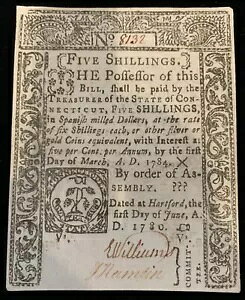 No 8132
FIVE SHILLINGS.
THE Possessor of this
BILL, shall be paid by the
TREASURER of the STATE of CON-
NECTICUT, FIVE SHILLINGS,
in Spanish milled Dollars, at the rate
of six Shillings each, or other silver or
gold Coins equivalent, with Interest at
five per Cent. per Annum, by the first
Day of March, A. D. 1784. X
By order of As-
SEMBLY. ???
Dated at Hartford, the
first Day of June, A.
D. 1780.
V.
Williams
COMMIT-
TEE.